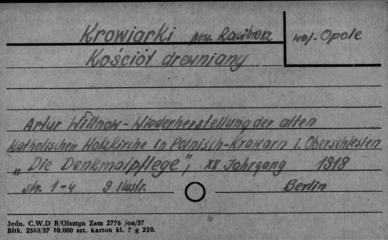 Krowiarki pow. Racibórz woj. Opole
Kościół drewniany
Artur Willnow-Wiederherstellung der alten
katholischen Holzkirche in Polnisch-Krawarn i. Oberschlesien
„Die Denkmalpflege", XX Jahrgang 1918
str. 1-4 9 ilustr. Berlin
Jedn. C.W.D B/Olsztyn Zam 2776 /on/57
Błtk. 2563/57 10.000 szt. karton kl. 7 g 220.